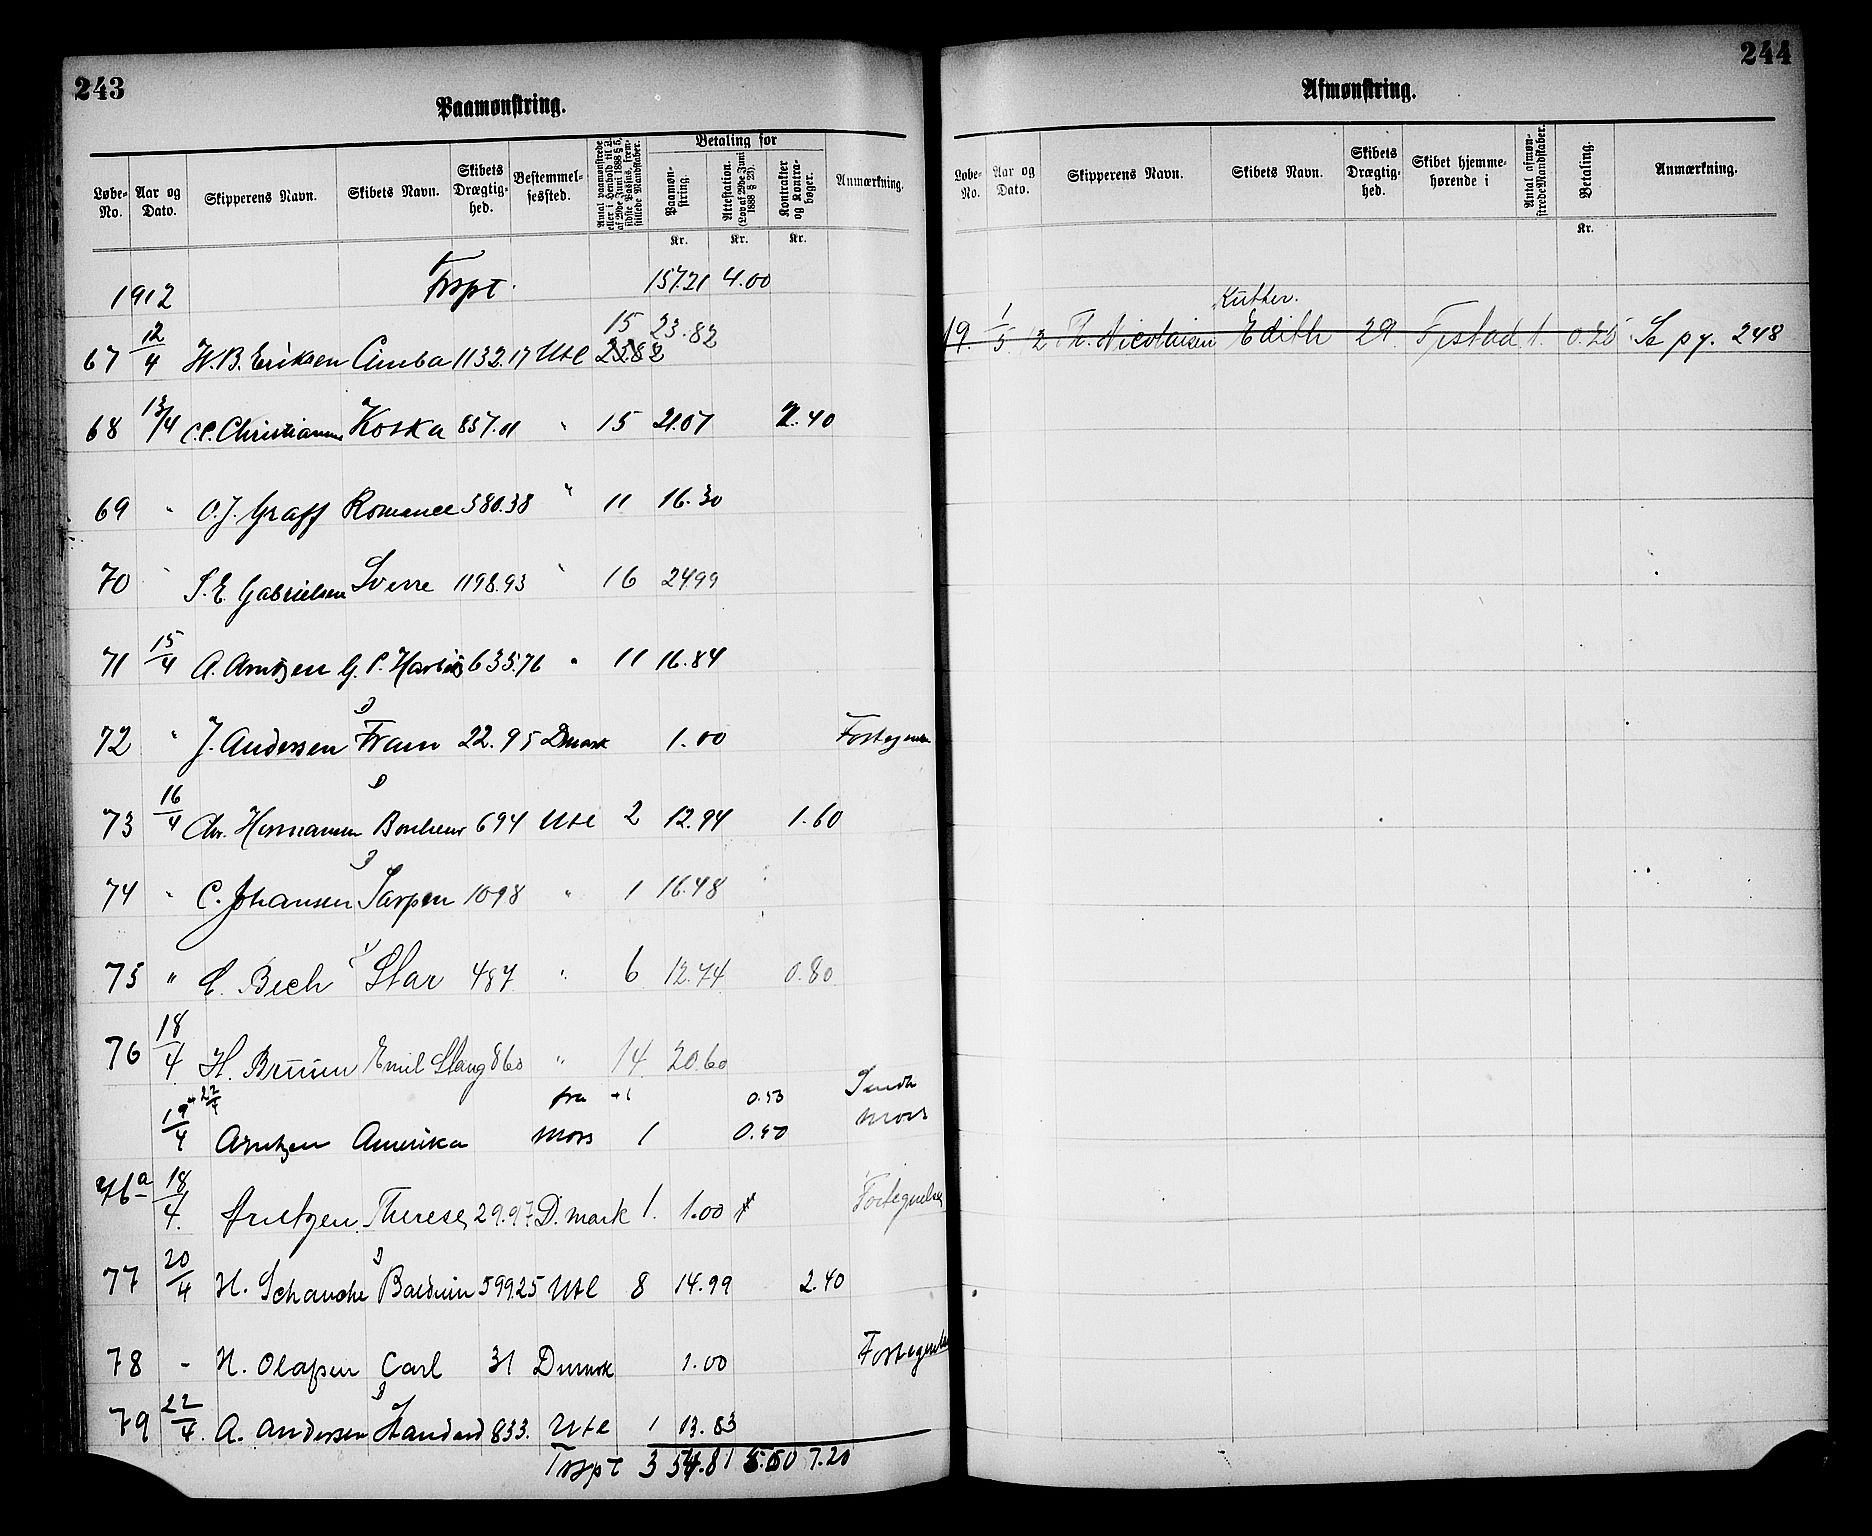 243
Paamønstring.
Løbe-No. Aar og Dato. Skipperens Navn. Skibets Navn. Skibets Drægtig-hed. Bestemmel-sessted. Antal paamønstrede eller i Henhold til L. af 29de Juni 1888 § 5, sidste Passus, frem-stillede Mandskaber. Betaling for Paamøn-string. Attestation. (Lov af 29de Juni 1888 § 23). Kontrakter og Kontra-bøger. Anmærkning.
Kr. Kr. Kr.
1912 Trspt. 157.21 4.00
67 12/4 H. B. Eriksen Cimba 1132.17 Utl 2382 15 23.82
68 13/4 C. C. Christiansen Koska 857.01 " 15 21.07 2.40
69 " O. J. Graff Romance 580.38 " 11 16.30
70 " S. E. Gabrielsen Sverre 1198.93 " 16 24 99
71 15/4 A. Arntzen G. P. Harbitz 635.76 " 11 16.84
72 " J. Andersen Fram 22.95 Dmark 1.00 Fortegnelse
73 16/4 Chr. Hermansen Bonheur 694 Utl 2 12.94 1.60
74 " C. Johansen Sarpen 1098 " 1 16.48
75 " C. Bech Star 487 " 6 12.74 0.80
76 18/4 H. Bruun Emil Stang 860 " 14 20.60
22/4 fra +1 0.50
19/4 Arntzen Amerika Moss 1 0.50 Sendt Moss
76a 18/4 Arntzen Therese 29.97 D.mark 1. 1.00 Fortegnelse
77 20/4 H. Schanche Balduin 599.25 Utl 8 14.99 2.40
78 - N. Olafsen Carl 31 Dnmrk 1.00 Fortegnelse
79 22/4 A. Andersen Standard 833. Utl 1 13.83
Trspt 354.81 5.00 7.20
244
Afmønstring.
Løbe-No. Aar og Dato. Skipperens Navn. Skibets Navn. Skibets Drægtig-hed. Skibet hjemme-hørende i Antal afmøn-strede Mandskaber. Betaling. Anmærkning.
Kr.
Kutter.
19. 1/5 12 Th. Nicolaisen Edith 29 F.stad 1. 0.25 Se pg. 248